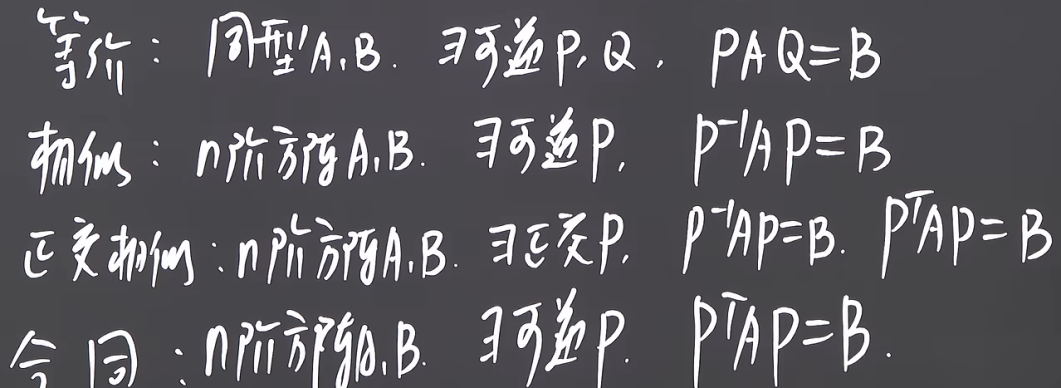 等价：同型A,B. ∃可逆P,Q, PAQ=B
相似：n阶方阵A,B. ∃可逆P, P⁻¹AP=B
正交相似：n阶方阵A,B. ∃正交P, P⁻¹AP=B. PᵀAP=B
合同：n阶方阵A,B. ∃可逆P. PᵀAP=B.